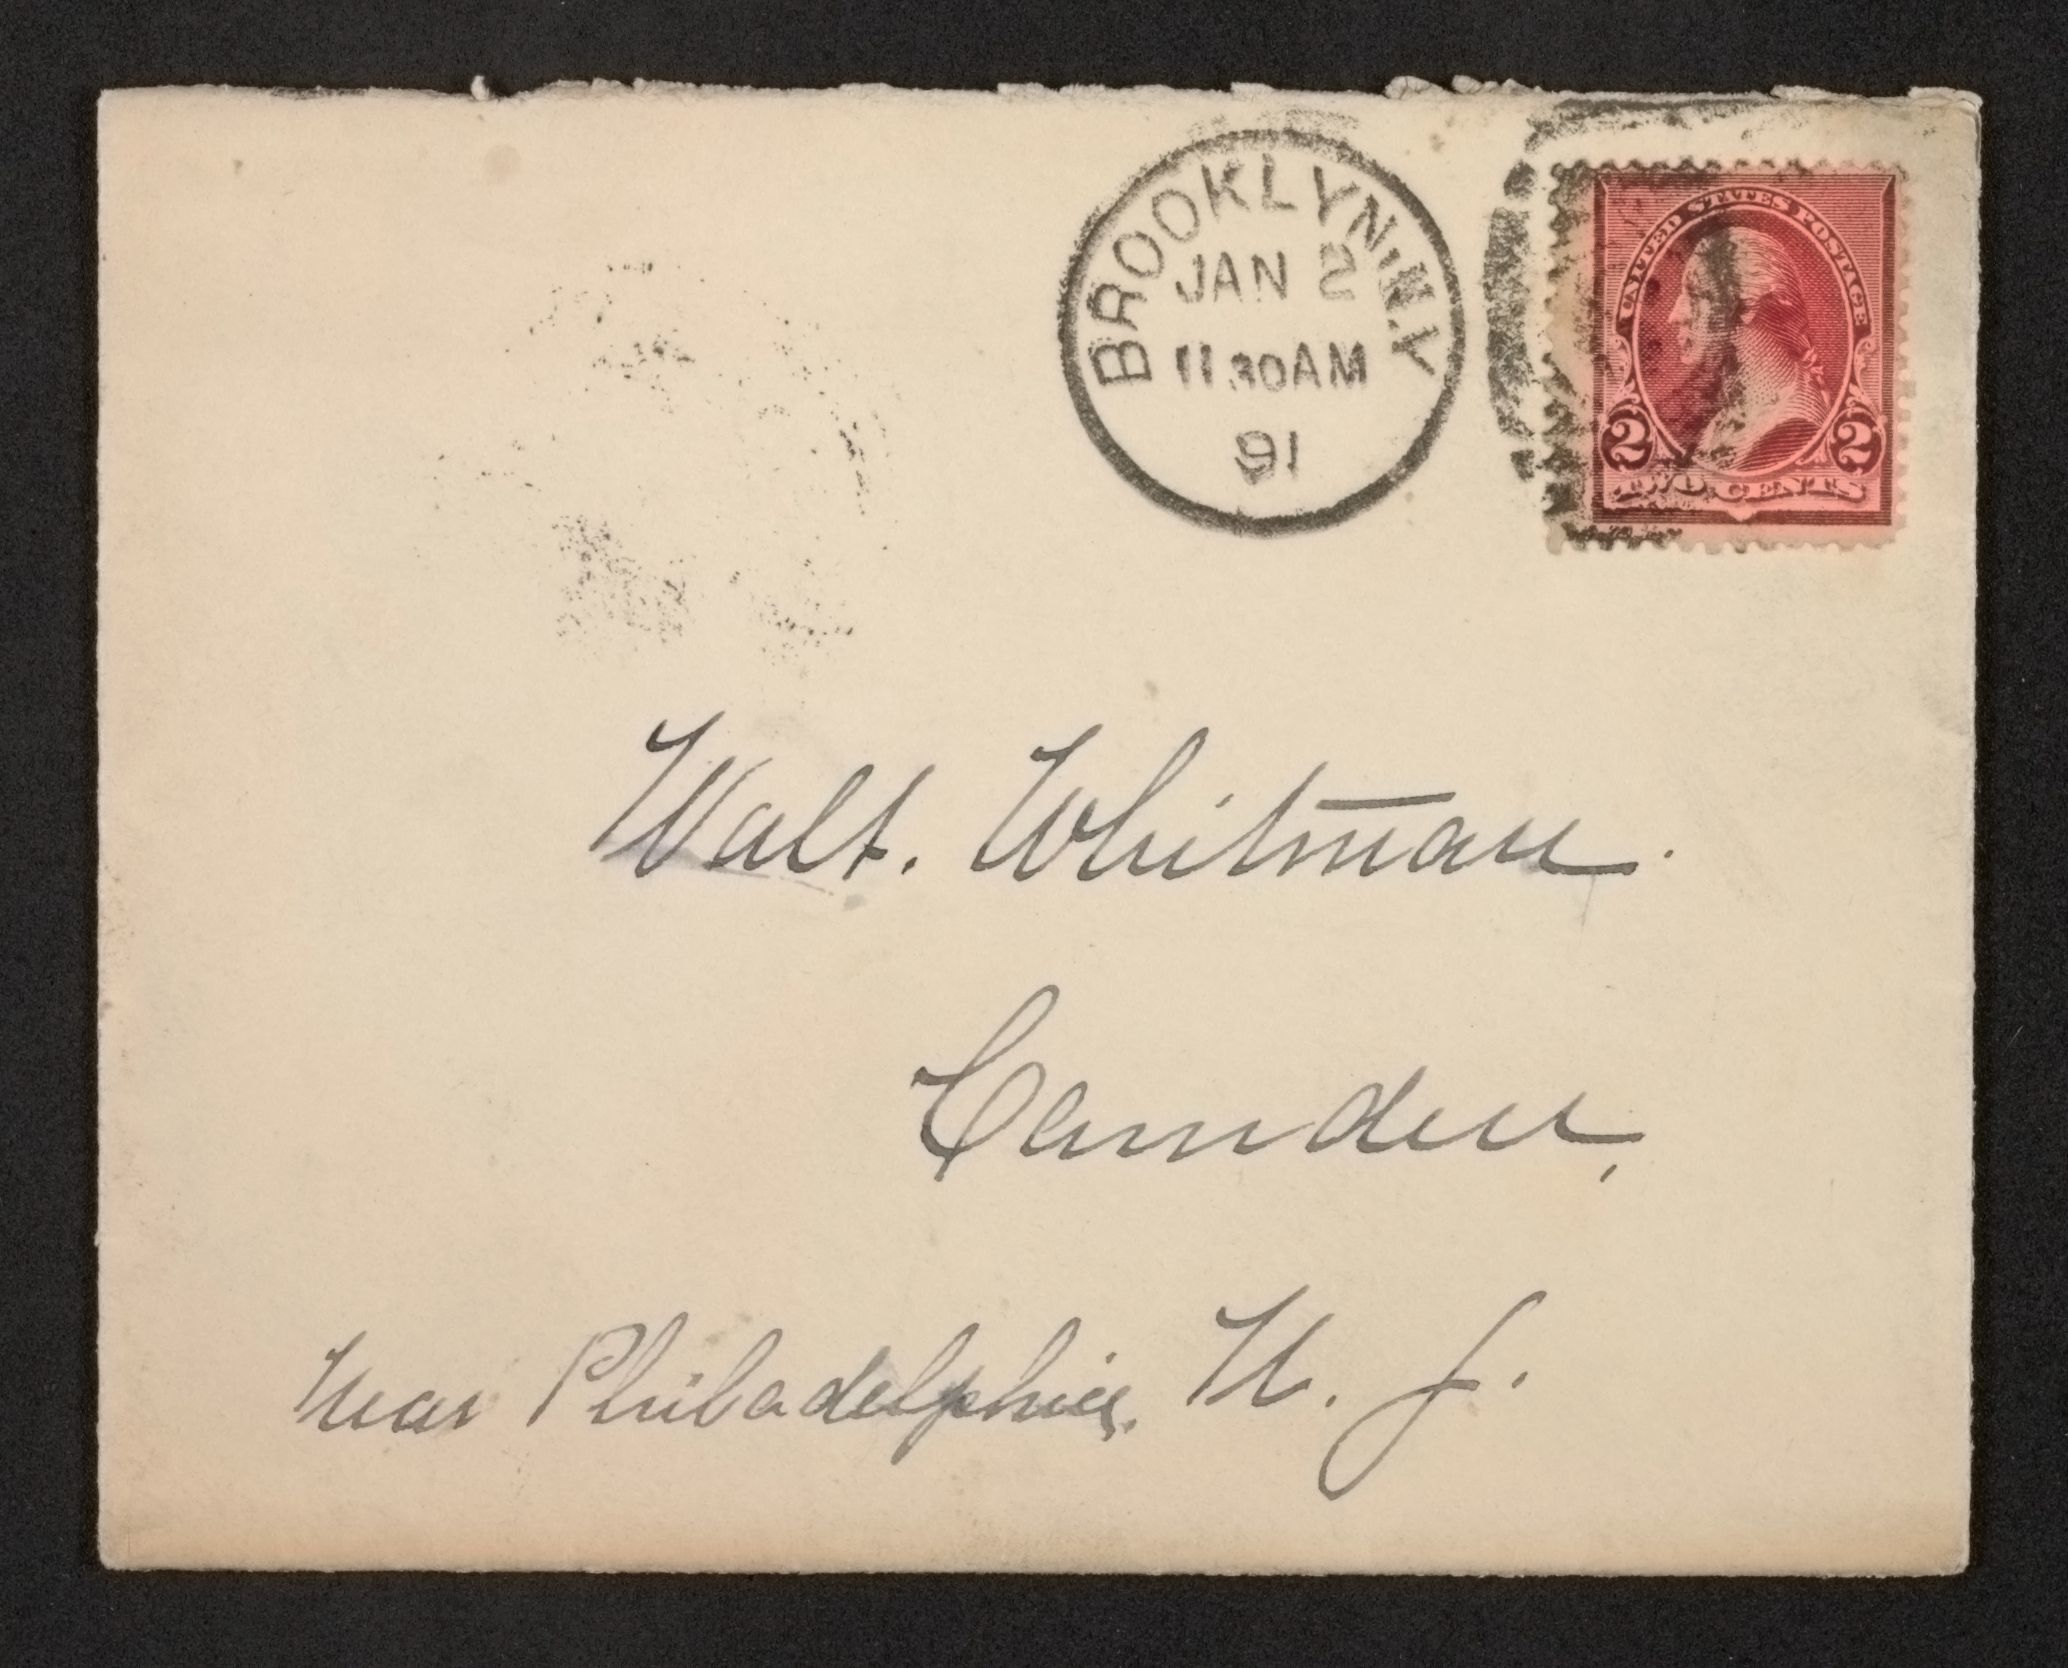 BROOKLYN, N.Y.
JAN 2
11 30 AM
91
UNITED STATES POSTAGE
2 2
TWO CENTS
Walt. Whitman.
Camden,
Near Philadelphia. N. J.